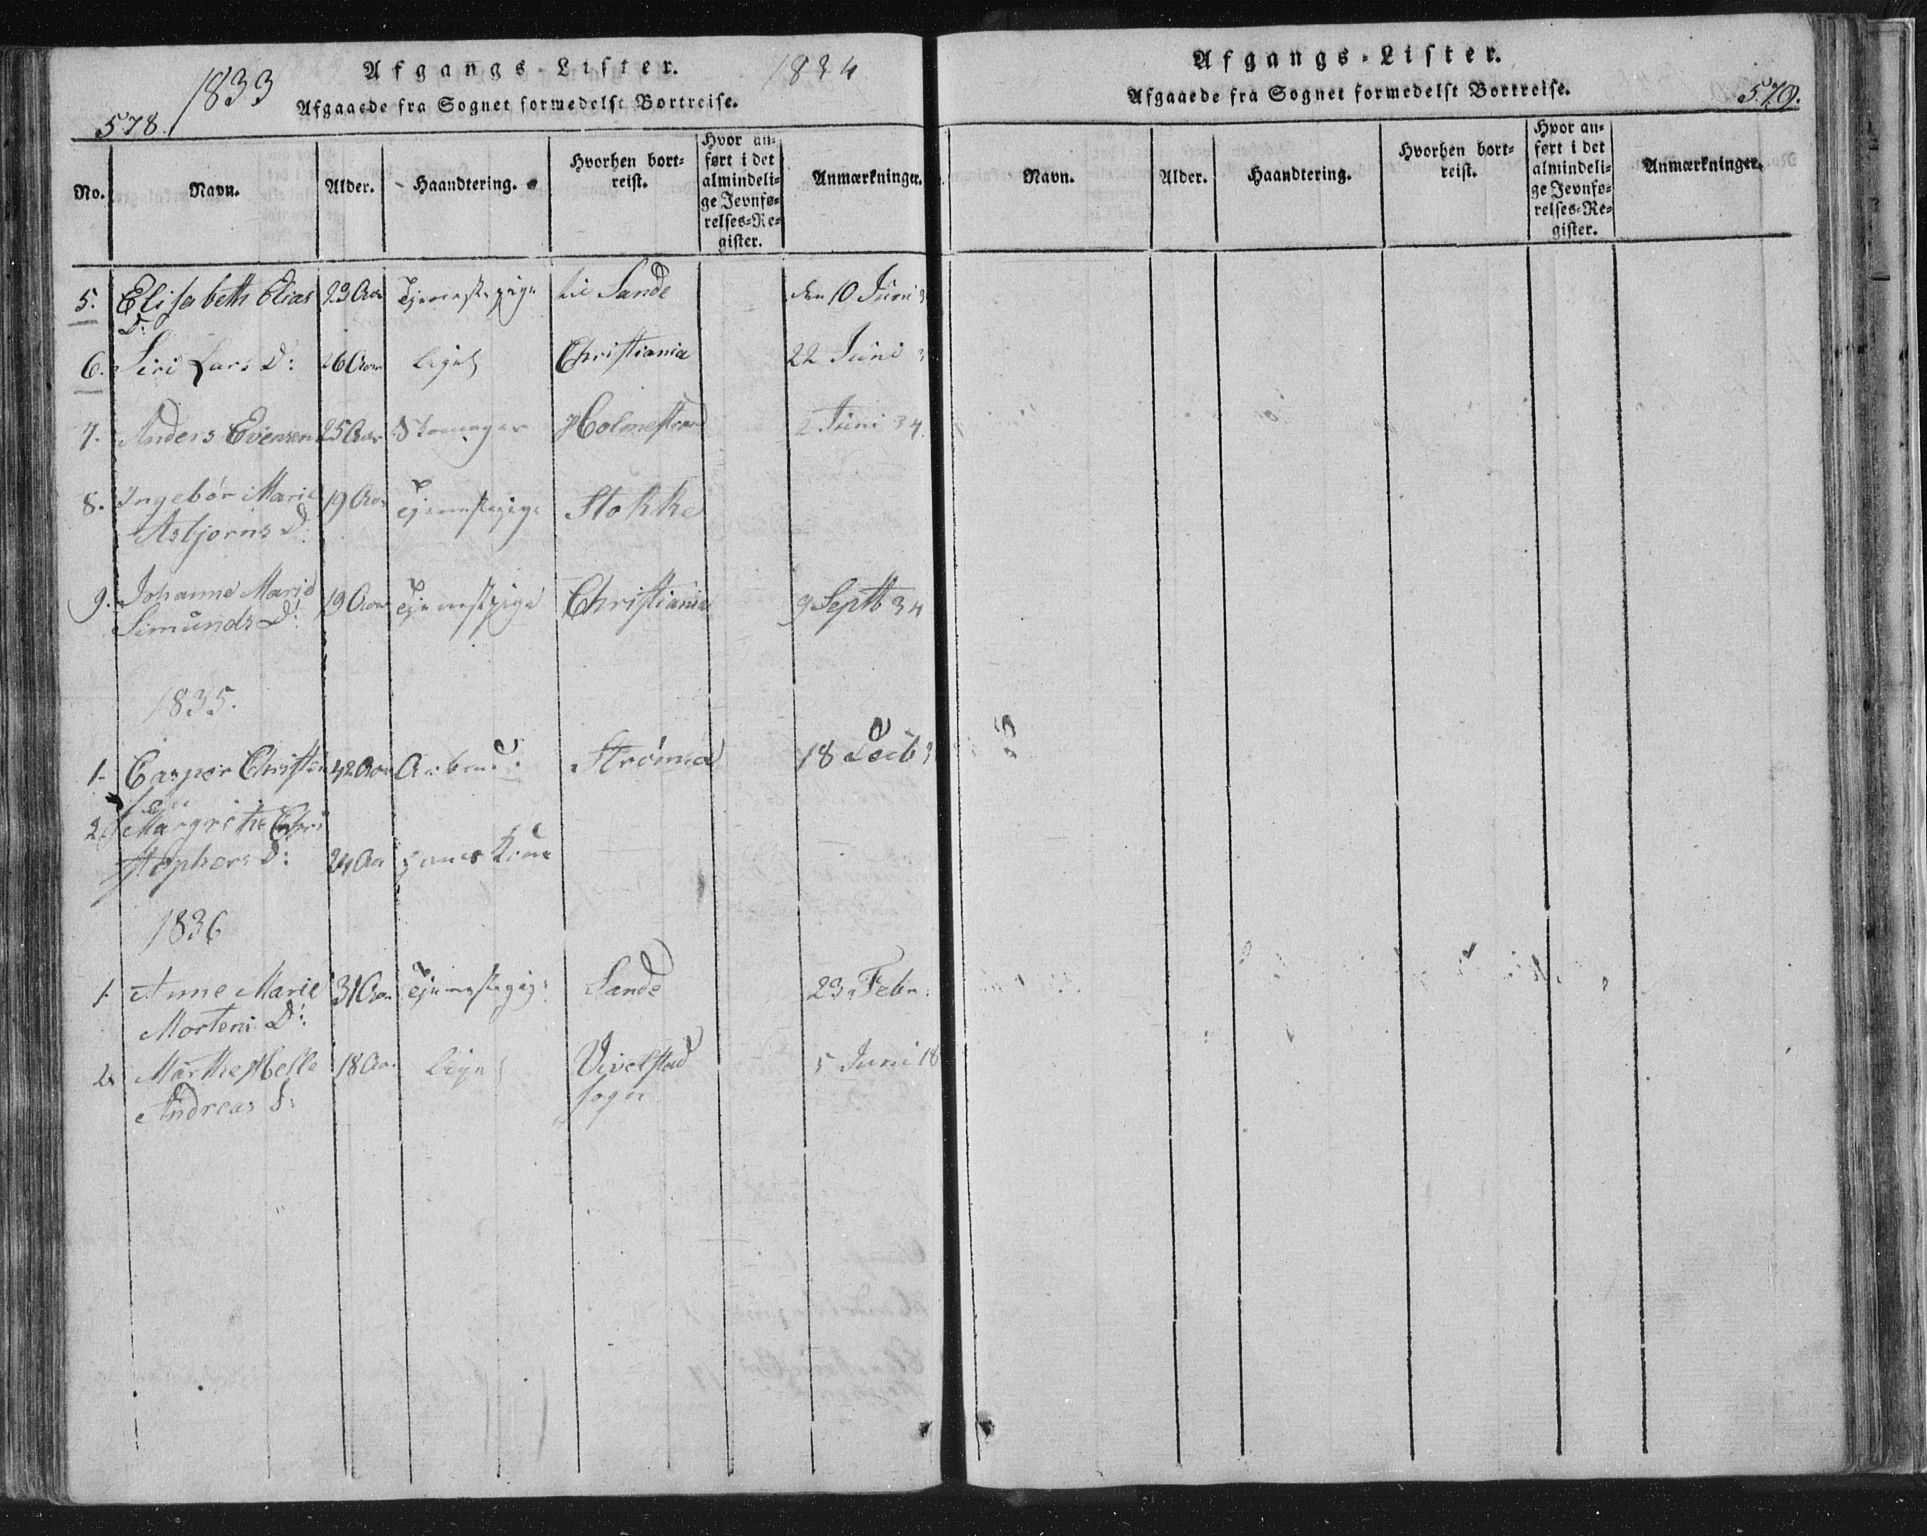 578.
1833
Afgangs-Lister.
1834
Afgaaede fra Sognet formedelst Bortreise.
No. Navn. Alder. Haandtering. Hvorhen bortreist. Hvor anført i det almindelige Jevnførelses-Register. Anmærkninger.
5. Elisabeth Elias 23 Aar Tjenestepige til Sande den 10 Juni
D:
6. Siri Lars D: 26 Aar ligel Christiania 22 Juni
7. Anders Evensen 25 Aar Skomager Holmestrand 2 Juni 34
8. Ingebór Marie 19 Aar Tjenestepige Stokke
Asbjørns D:
9. Johanne Marie 19 Aar Tjenestpige Christiania 9 Septb 34
Simunds D:
1835.
1. Casper Christen 42 Aar Strömmd 18
sen
2. Margrethe Chri
stophers D: 24 Aar Kone
1836
1. Anne Marie 31 Aar Tjenestepige Sande 23 Febr.
Mortens D:
2. Marthe Helle 18 Aar Lige Vivelstad 5 Juni 18
Andreas D: sogn
Afgangs-Lister.
Afgaaede fra Sognet formedelst Bortreise.
579.
Navn. Alder. Haandtering. Hvorhen bortreist. Hvor anført i det almindelige Jevnførelses-Register. Anmærkninger.
35